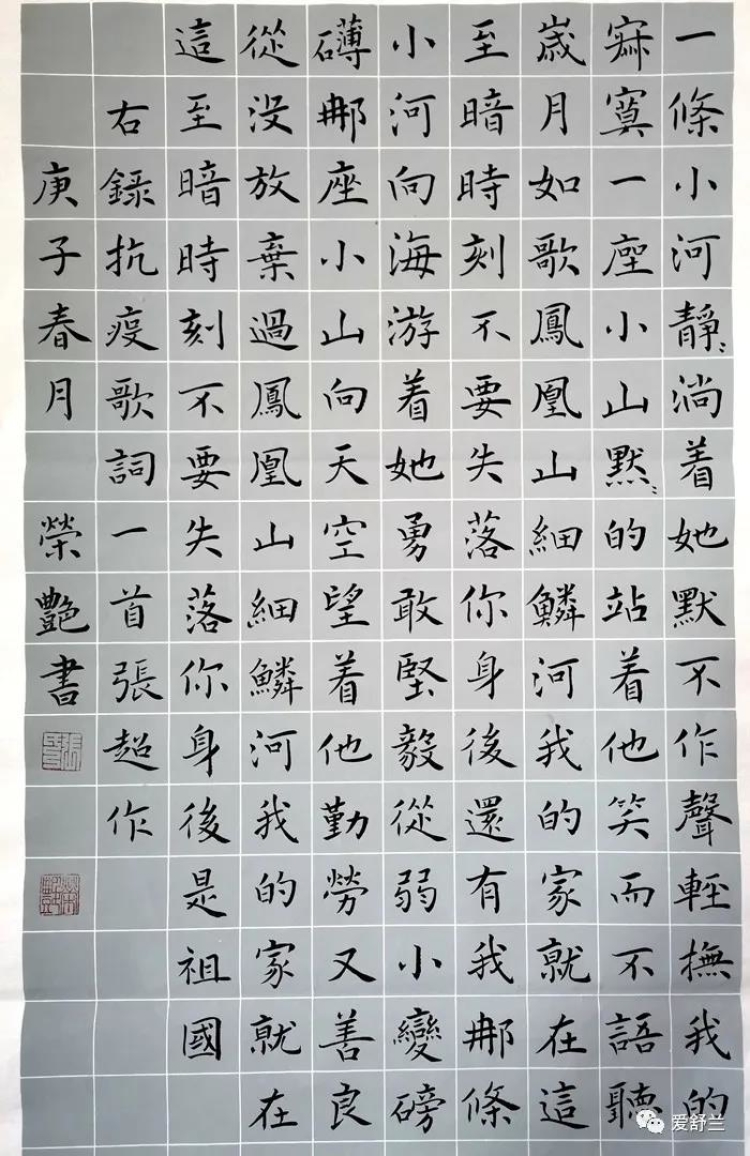 一條小河靜〻淌着她默不作聲輕撫我的
寂寞一座小山默〻的站着他笑而不語聽
嵗月如歌鳳凰山細鱗河我的家就在這
至暗時刻不要失落你身後還有我那條
小河向海游着她勇敢堅毅從弱小變磅
礴那座小山向天空望着他勤勞又善良
從没放棄過鳳凰山細鱗河我的家就在
這至暗時刻不要失落你身後是祖國
右錄抗疫歌詞一首張超作
庚子春月 榮艷書
爱舒兰